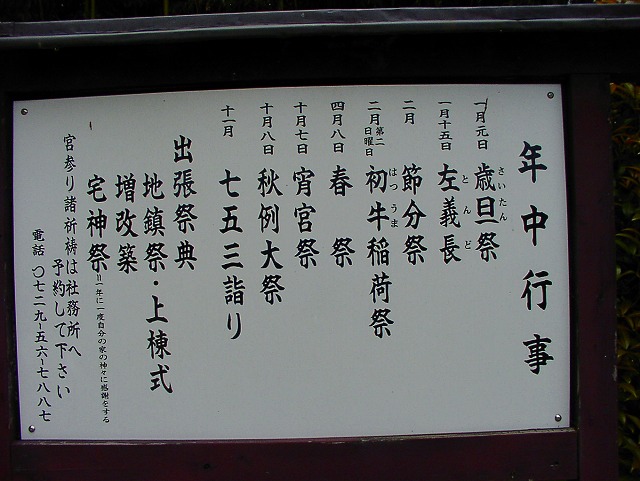 年中行事
一月元旦 歳旦祭
さいたん
一月十五日 左義長
とんど
二月 節分祭
二月第二日曜日 初午稲荷祭
はつうま
四月八日 春祭
十月七日 宵宮祭
十月八日 秋例大祭
十一月 七五三詣り
出張祭典
地鎮祭・上棟式
増改築
宅神祭=一年に一度自分の家の神々に感謝をする
宮参り諸祈祷は社務所へ
予約して下さい
電話 〇七二九-五六-七八八七